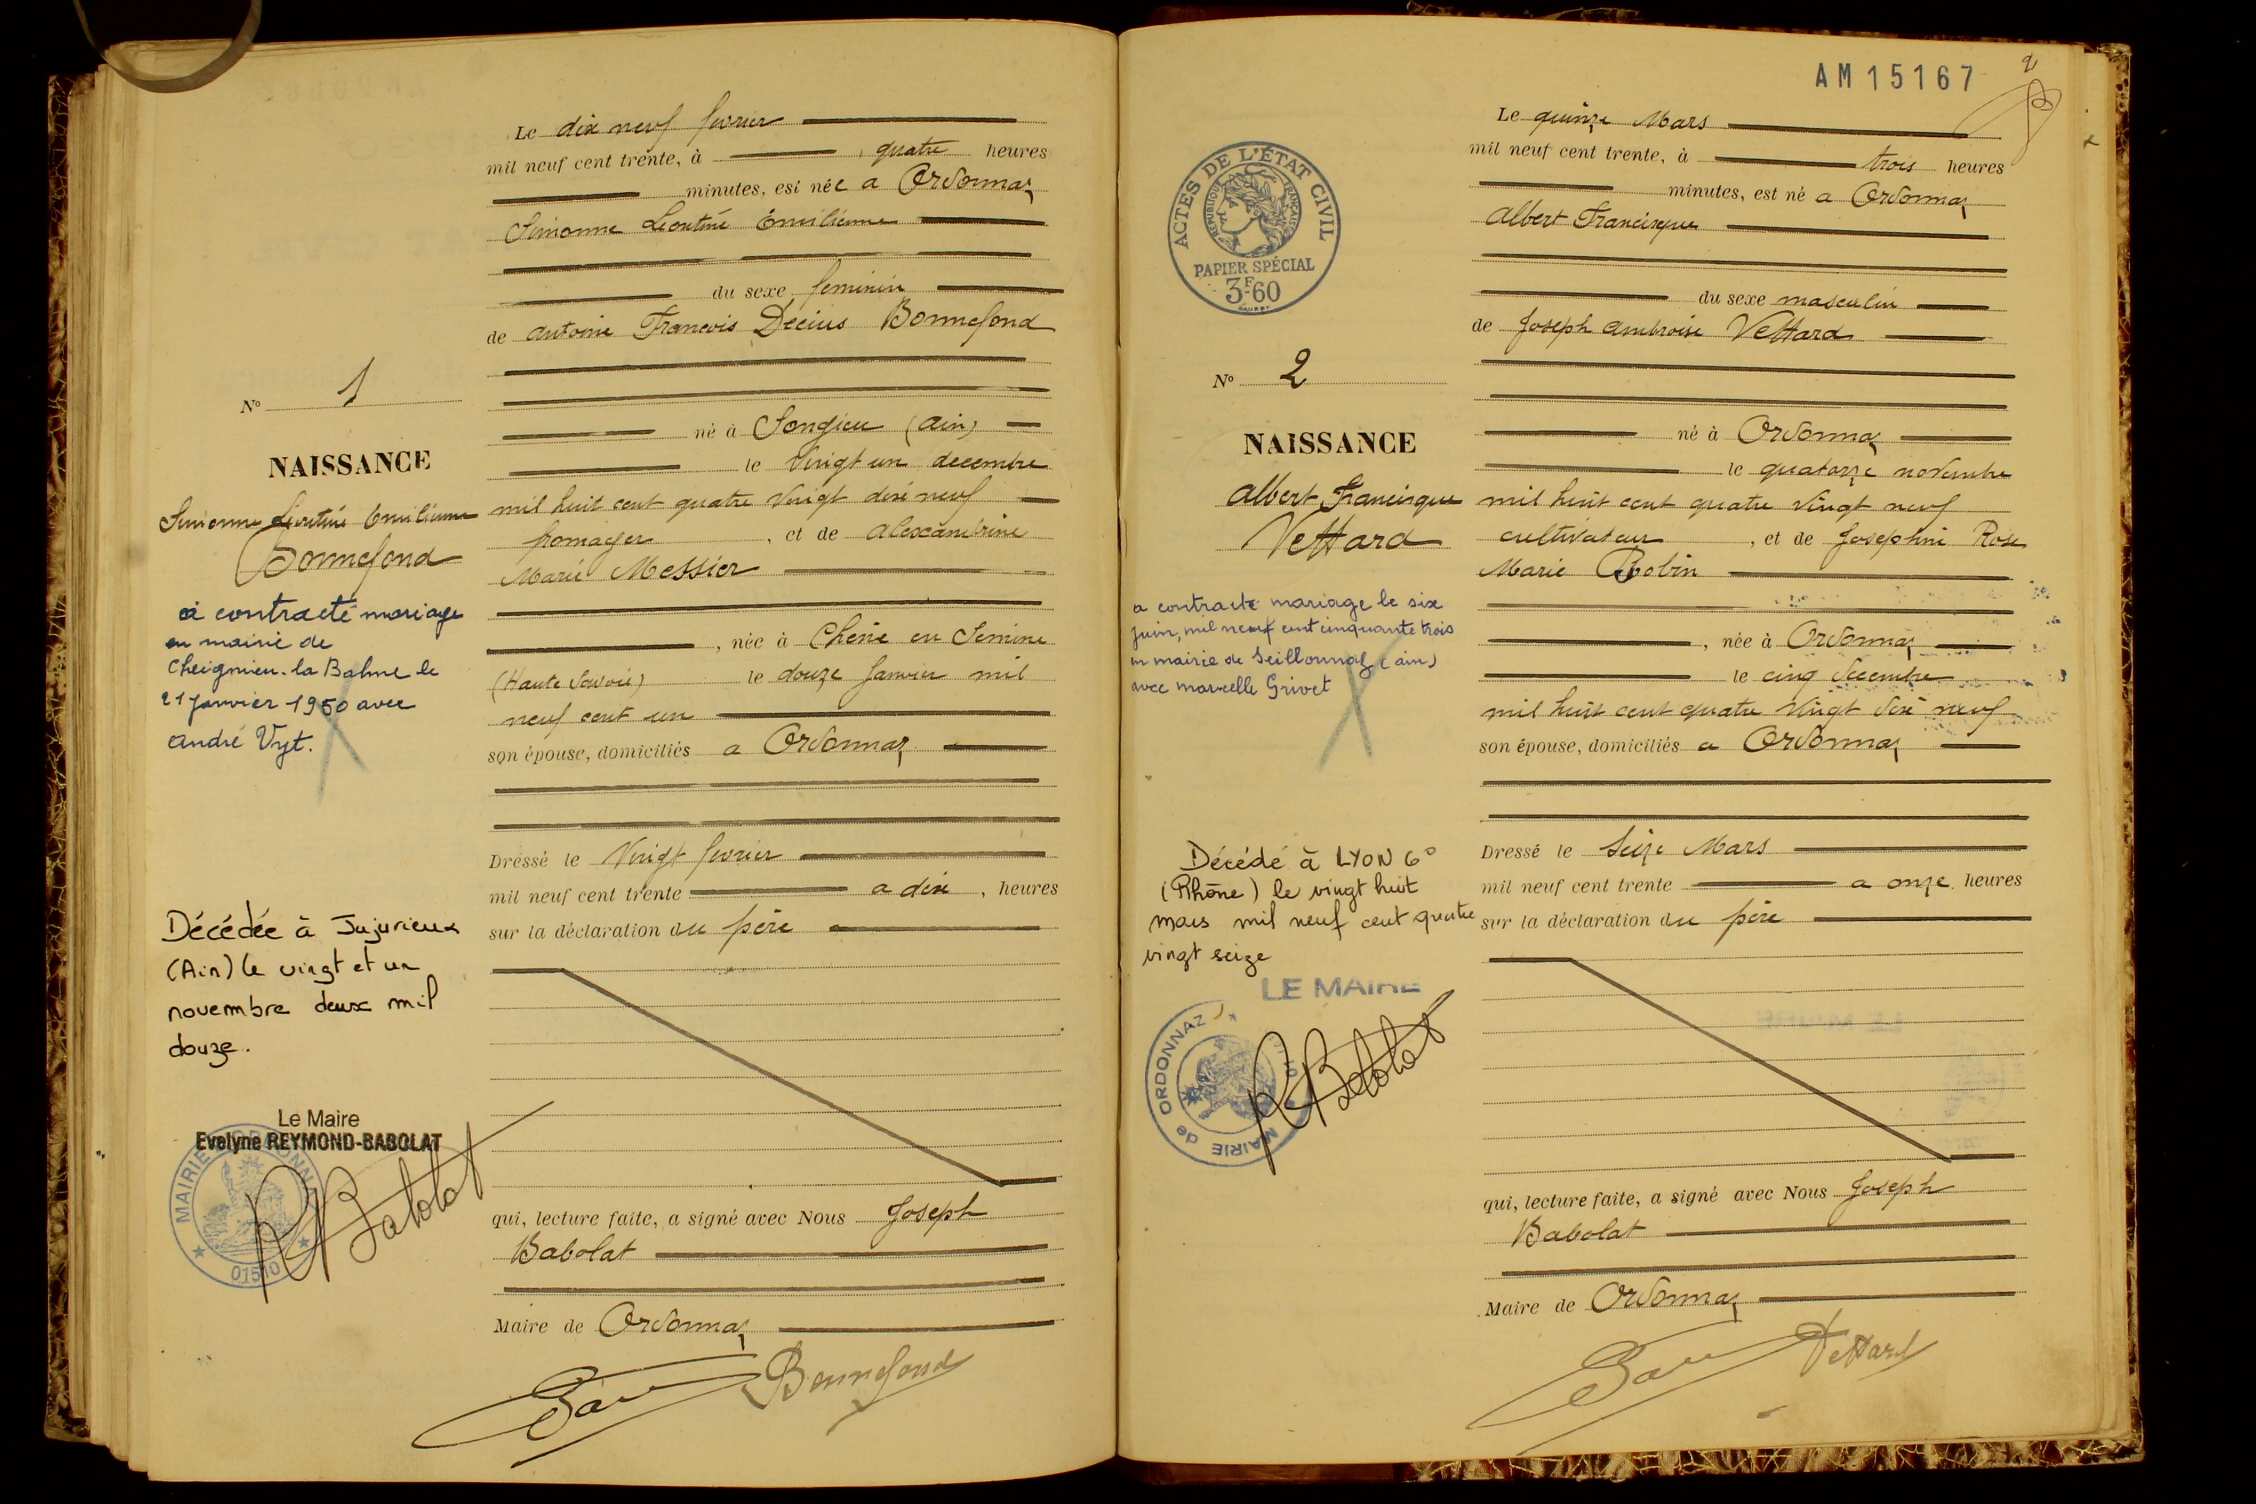 Le dix neuf fevrier
mil neuf cent trente, à quatre heures
minutes, est née a Ordonnaz
Simonne Léontine Emilienne
du sexe feminin
de Antoine François Décius Bonnefond
né à Songieu (Ain)
le Vingt un decembre
mil huit cent quatre Vingt dixi neuf
fromager, et de Alexandrine
Marie Messier
, née à Chêne en Semine
(Haute Savoie) le douze Janvier mil
neuf cent un
son épouse, domiciliés a Ordonnaz
Dressé le Vingt fevrier
mil neuf cent trente a dix, heures
sur la déclaration du père
qui, lecture faite, a signé avec Nous Joseph
Babolat
Maire de Ordonnaz
Bonnefond
N° 1
NAISSANCE
Simonne Léontine Emilienne
Bonnefond
a contracté mariage
en mairie de
Cheignieu-la Balme le
21 Janvier 1950 avec
André Vyt.
Décédée à Jujurieux
(Ain) le vingt et un
novembre deux mil
douze.
Le Maire
Evelyne REYMOND-BABOLAT
MAIRIE ORDONNAZ
01510
R Babolat
AM 15167
2
Le quinze Mars
mil neuf cent trente, à trois heures
minutes, est né a Ordonnaz
Albert Francisque
du sexe masculin
de Joseph Ambroise Vettard
né à Ordonnaz
le quatorze novembre
mil huit cent quatre vingt neuf
cultivateur, et de Joséphine Rose
Marie Bobin
, née à Ordonnaz
le cinq decembre
mil huit cent quatre Vingt dixi neuf
son épouse, domiciliés a Ordonnaz
Dressé le Seize Mars
mil neuf cent trente a onze heures
sur la déclaration du père
qui, lecture faite, a signé avec Nous Joseph
Babolat
Maire de Ordonnaz
Vettard
ACTES DE L'ÉTAT CIVIL
RÉPUBLIQUE FRANÇAISE
PAPIER SPÉCIAL
3F60
N° 2
NAISSANCE
Albert Francisque
Vettard
a contracté mariage le six
juin, mil neuf cent cinquante trois
en mairie de Seillonnaz (ain)
avec marcelle Grivet
Décédé à LYON 6°
(Rhône) le vingt huit
mars mil neuf cent quatre
vingt seize
LE MAIRE
MAIRIE de ORDONNAZ
R Babolat